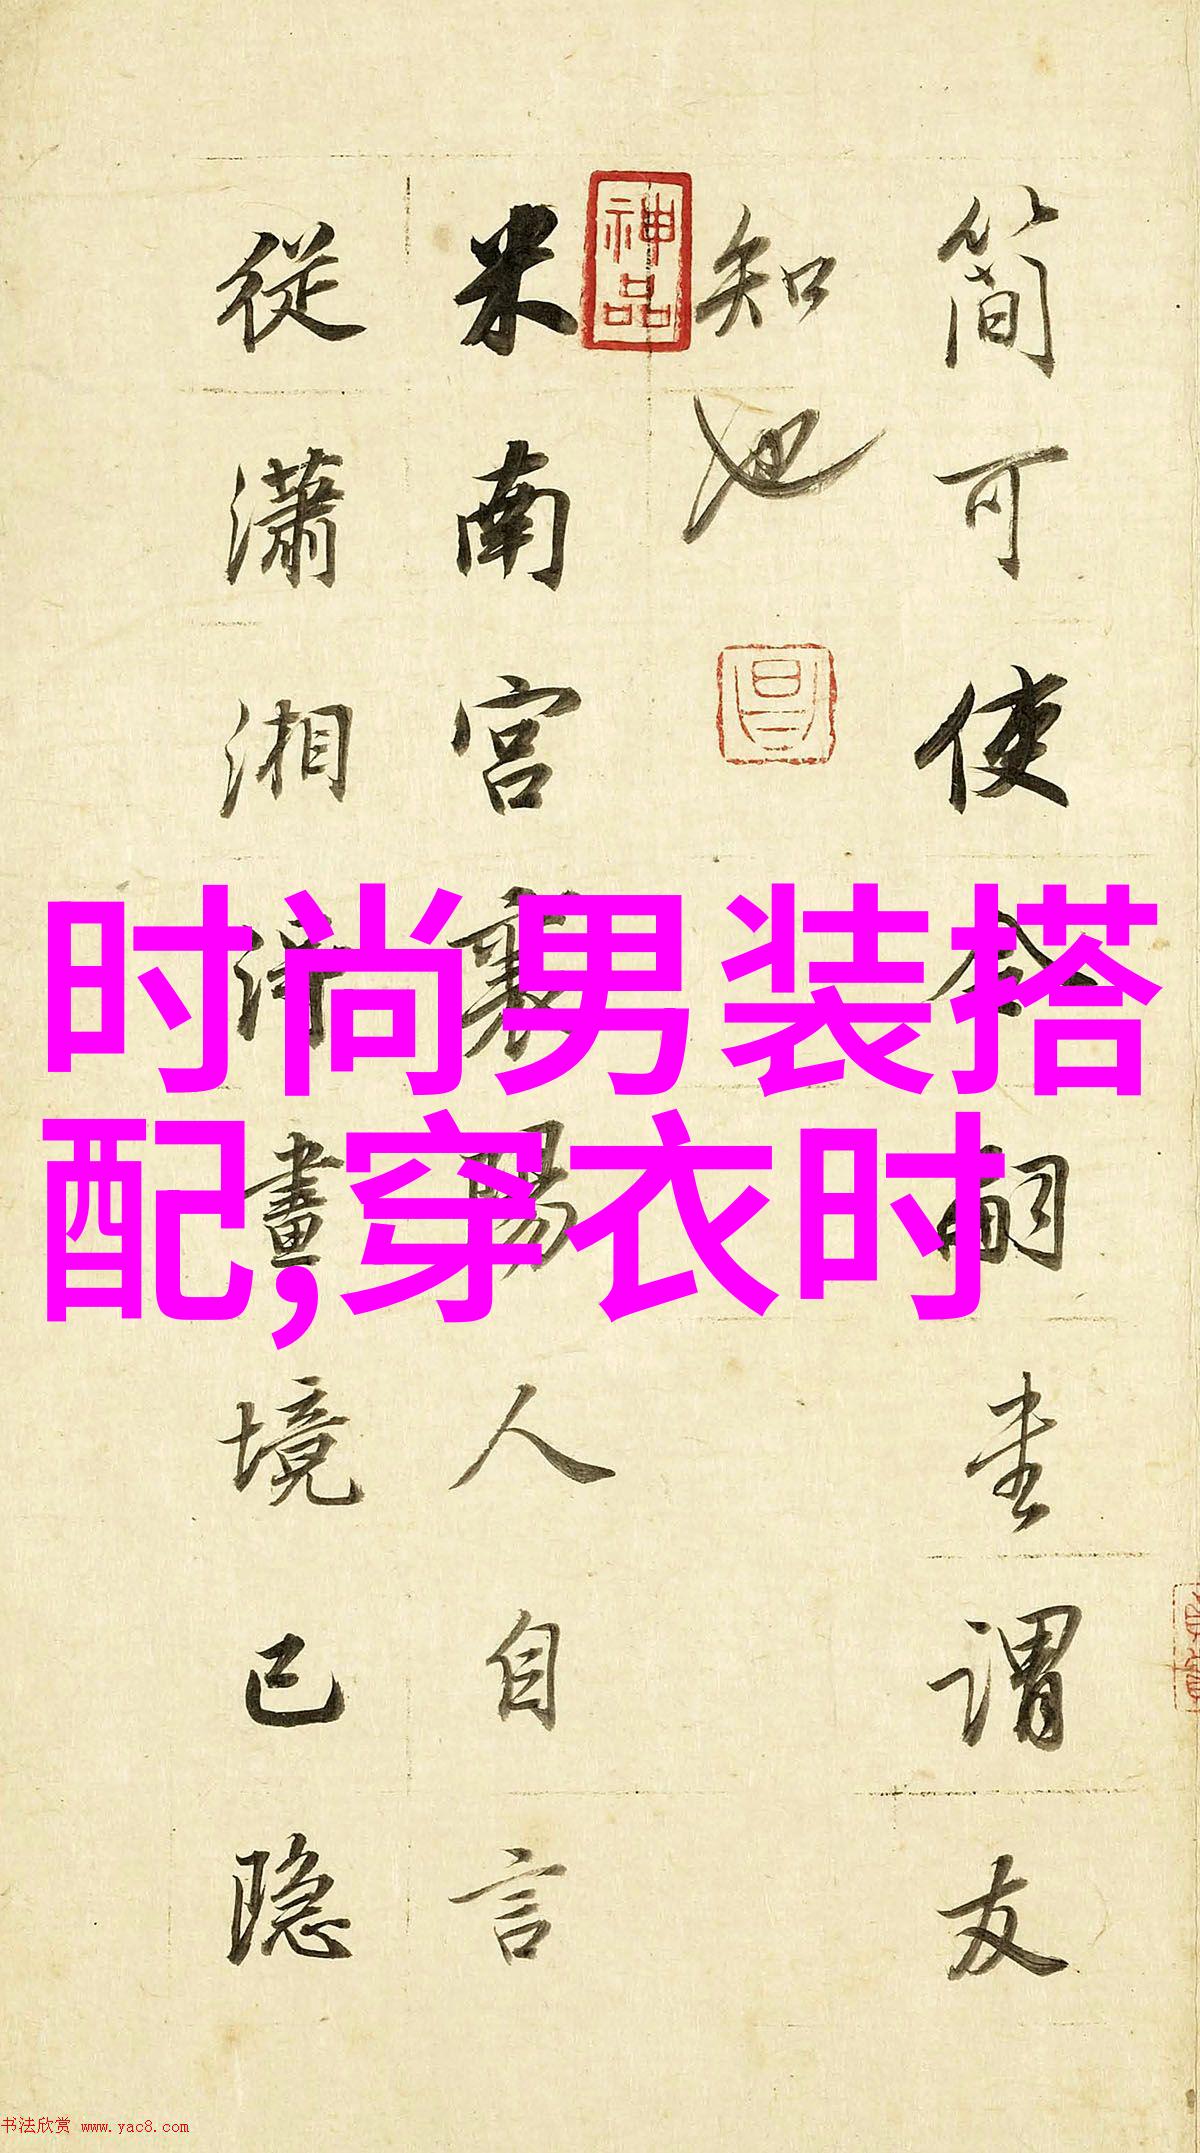 簡可使令嗣謂友
知也
神品
昌
米南宮襄陽人自言
從瀟湘得畫境已隱
时尚男装搭
配,穿衣时
书法欣赏 www.yac8.com